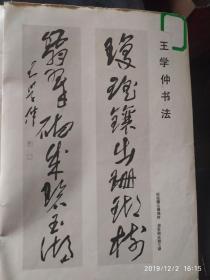 王学仲书法
琼瑰镶出珊瑚树
翡翠砌成玉湖
王学仲
2019/12/2 16:15